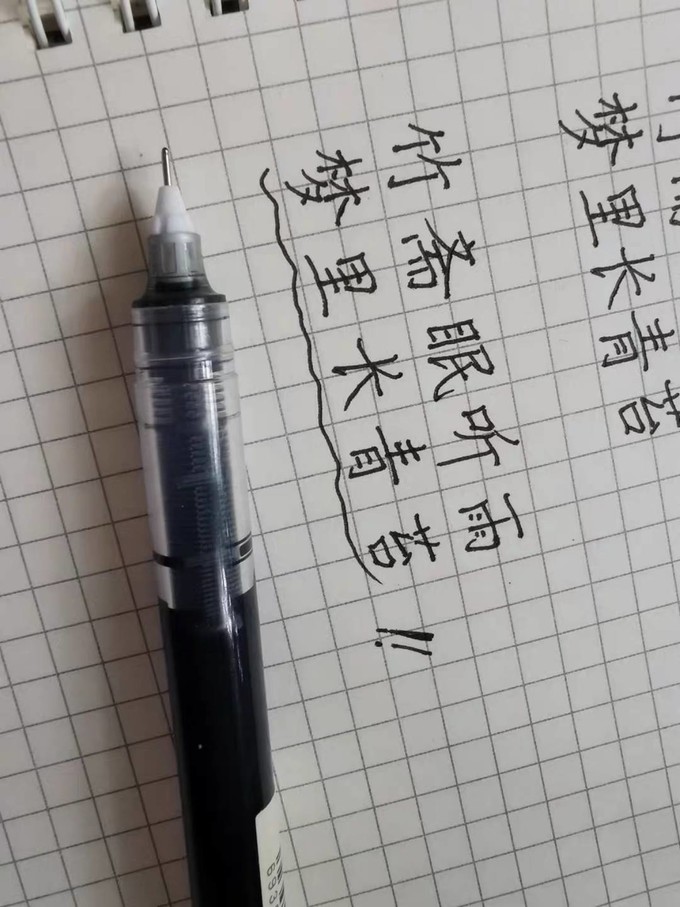 梦里长青苔
竹斋眠听雨
梦里长青苔!!